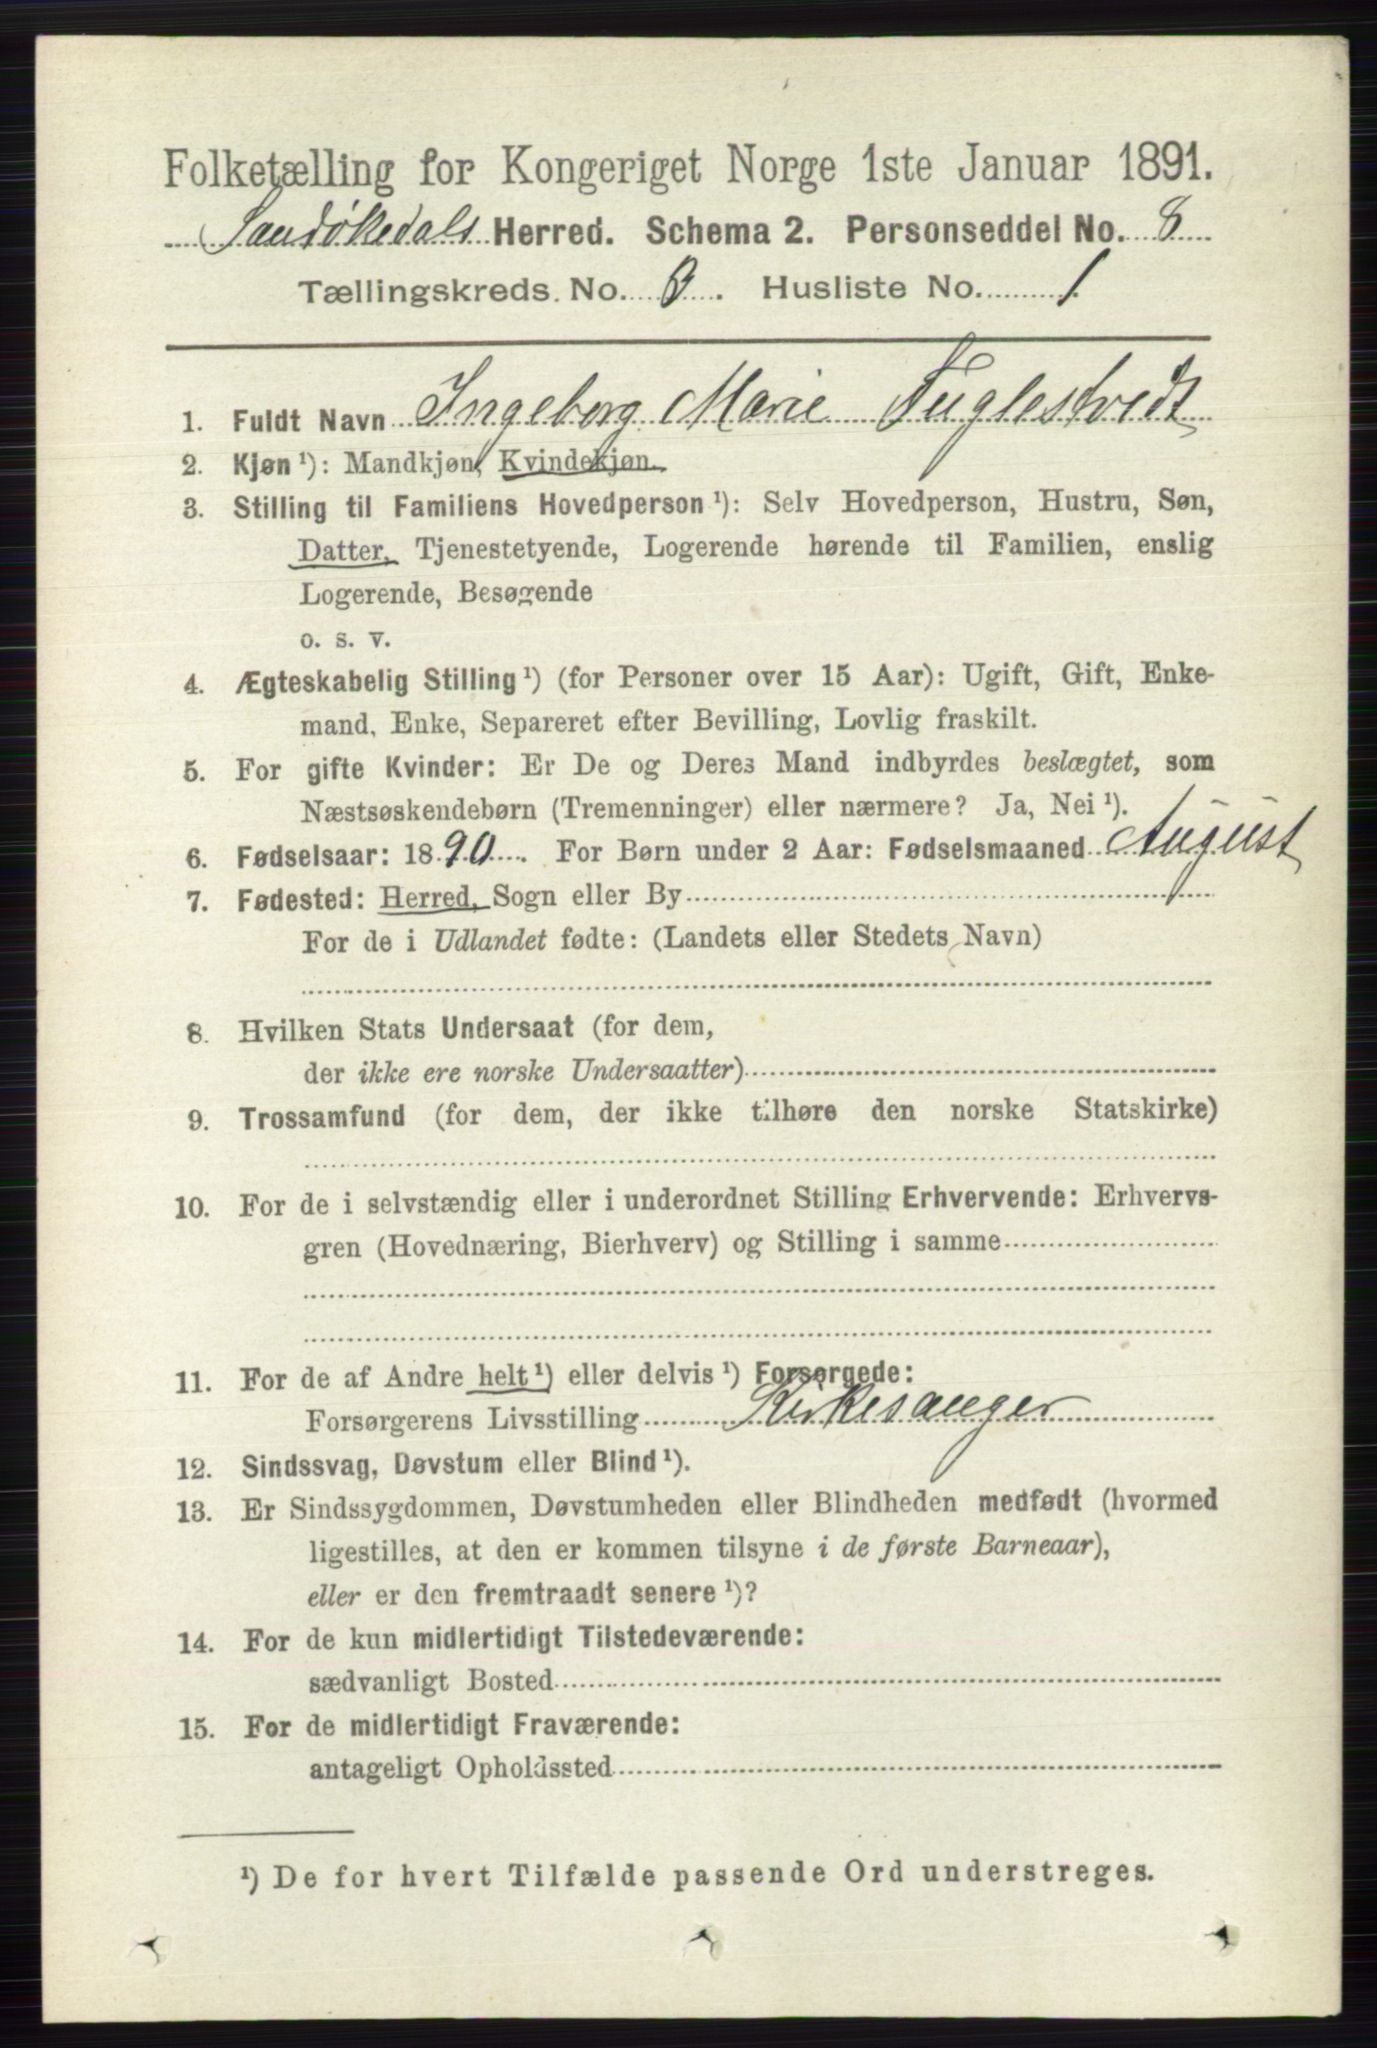 Folketælling for Kongeriget Norge 1ste Januar 1891.
Sandøkedals Herred. Schema 2. Personseddel No. 8
Tællingskreds No. 8. Husliste No. 1
1. Fuldt Navn Ingeborg Marie Fuglestvedt
2. Kjøn ¹): Mandkjøn, Kvindekjøn.
3. Stilling til Familiens Hovedperson ¹): Selv Hovedperson, Hustru, Søn,
Datter, Tjenestetyende, Logerende hørende til Familien, enslig
Logerende, Besøgende
o. s. v.
4. Ægteskabelig Stilling ¹) (for Personer over 15 Aar): Ugift, Gift, Enke-
mand, Enke, Separeret efter Bevilling, Lovlig fraskilt.
5. For gifte Kvinder: Er De og Deres Mand indbyrdes beslægtet, som
Næstsøskendebørn (Tremenninger) eller nærmere? Ja, Nei ¹).
6. Fødselsaar: 1890. For Børn under 2 Aar: Fødselsmaaned August
7. Fødested: Herred, Sogn eller By
For de i Udlandet fødte: (Landets eller Stedets Navn)
8. Hvilken Stats Undersaat (for dem,
der ikke ere norske Undersaatter)
9. Trossamfund (for dem, der ikke tilhøre den norske Statskirke)
10. For de i selvstændig eller i underordnet Stilling Erhvervende: Erhvervs-
gren (Hovednæring, Bierhverv) og Stilling i samme
11. For de af Andre helt ¹) eller delvis ¹) Forsørgede:
Forsørgerens Livsstilling Kirkesanger
12. Sindssvag, Døvstum eller Blind ¹).
13. Er Sindssygdommen, Døvstumheden eller Blindheden medfødt (hvormed
ligestilles, at den er kommen tilsyne i de første Barneaar),
eller er den fremtraadt senere ¹)?
14. For de kun midlertidigt Tilstedeværende:
sædvanligt Bosted
15. For de midlertidigt Fraværende:
antageligt Opholdssted
¹) De for hvert Tilfælde passende Ord understreges.